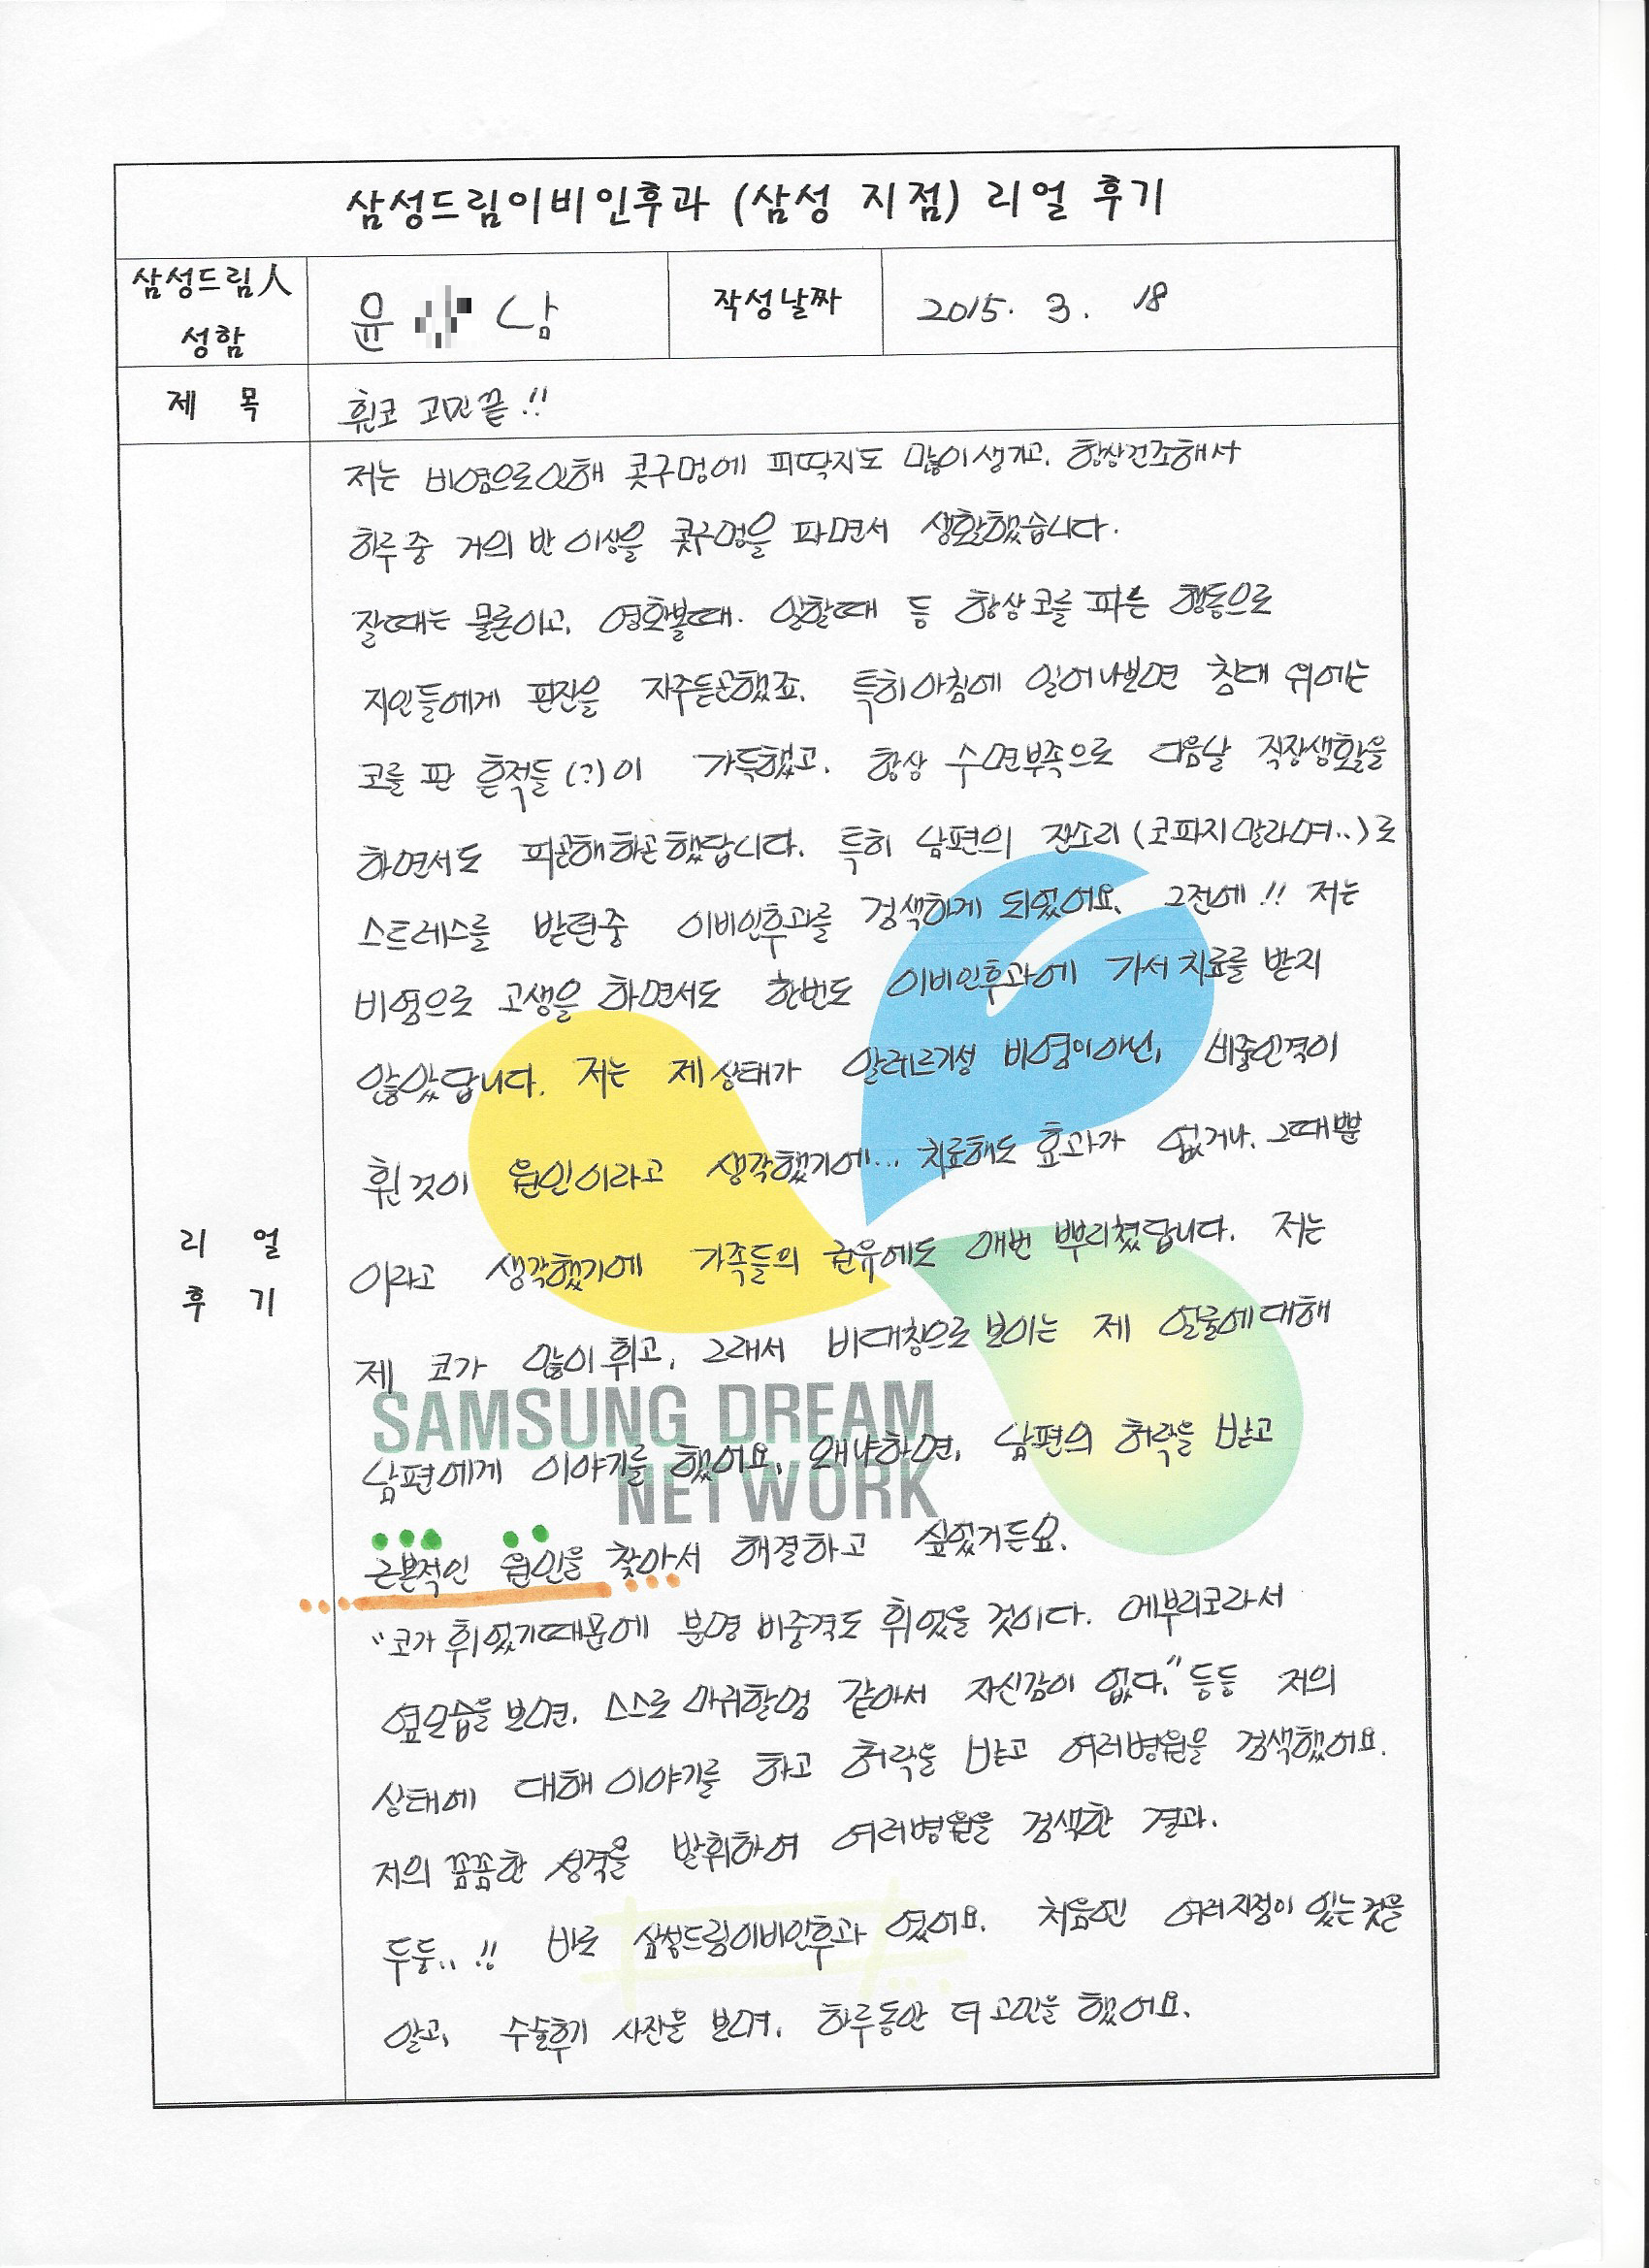 삼성드림이비인후과 (삼성 지점) 리얼 후기
삼성드림人
성함
윤 남
작성날짜
2015. 3. 18
제 목
휜코 고민끝!!
저는 비염으로인해 콧구멍에 피딱지도 많이생기고, 항상건조해서
하루중 거의 반 이상을 콧구멍을 파면서 생활했습니다.
잘때는 물론이고, 영화볼때. 일할때 등 항상 코를 파는 행동으로
지인들에게 핀잔을 자주듣곤했죠. 특히아침에 일어나보면 침대 위에는
코를 판 흔적들(?)이 가득했고, 항상 수면부족으로 다음날 직장생활을
하면서도 피곤해하곤했답니다. 특히 남편의 잔소리(코파지말라며..)로
스트레스를 받던중 이비인후과를 검색하게 되었어요. 그전에!! 저는
비염으로 고생을 하면서도 한번도 이비인후과에 가서치료를 받지
않았답니다. 저는 제상태가 알레르기성 비염이아닌, 비중인격이
휜것이 원인이라고 생각했기에... 치료해도 효과가 없거나, 그때뿐
이라고 생각했기에 가족들의 권유에도 매번 뿌리쳤답니다. 저는
제 코가 많이휘고, 그래서 비대칭으로보이는 제 얼굴에대해
남편에게 이야기를 했어요. 왜냐하면, 남편의 허락을 받고
근본적인 원인을 찾아서 해결하고 싶었거든요.
"코가 휘었기때문에 분명 비중격도 휘었을 것이다. 매부리코라서
옆모습을보면, 스스로 마귀할멈 같아서 자신감이 없다." 등등 저의
상태에 대해이야기를 하고 허락을 받고 여러병원을 검색했어요.
저의 꼼꼼한 성격을 발휘하여 여러병원을 검색한 결과.
두둥..!! 바로 삼성드림이비인후과 였어요. 처음엔 여러지점이 있는것을
알고, 수술후기 사진을 보며, 하루동안 더 고민을 했어요.
리 얼
후 기
SAMSUNG DREAM
NETWORK